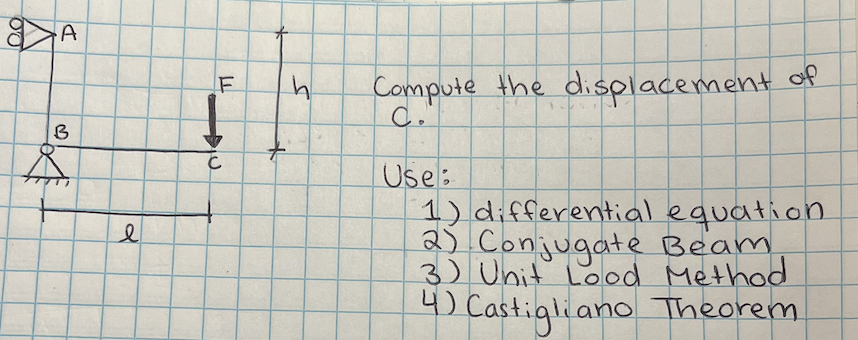 A
F
h
Compute the displacement of
C.
B
C
Use:
1) differential equation
l
2) Conjugate Beam
3) Unit Load Method
4) Castigliano Theorem